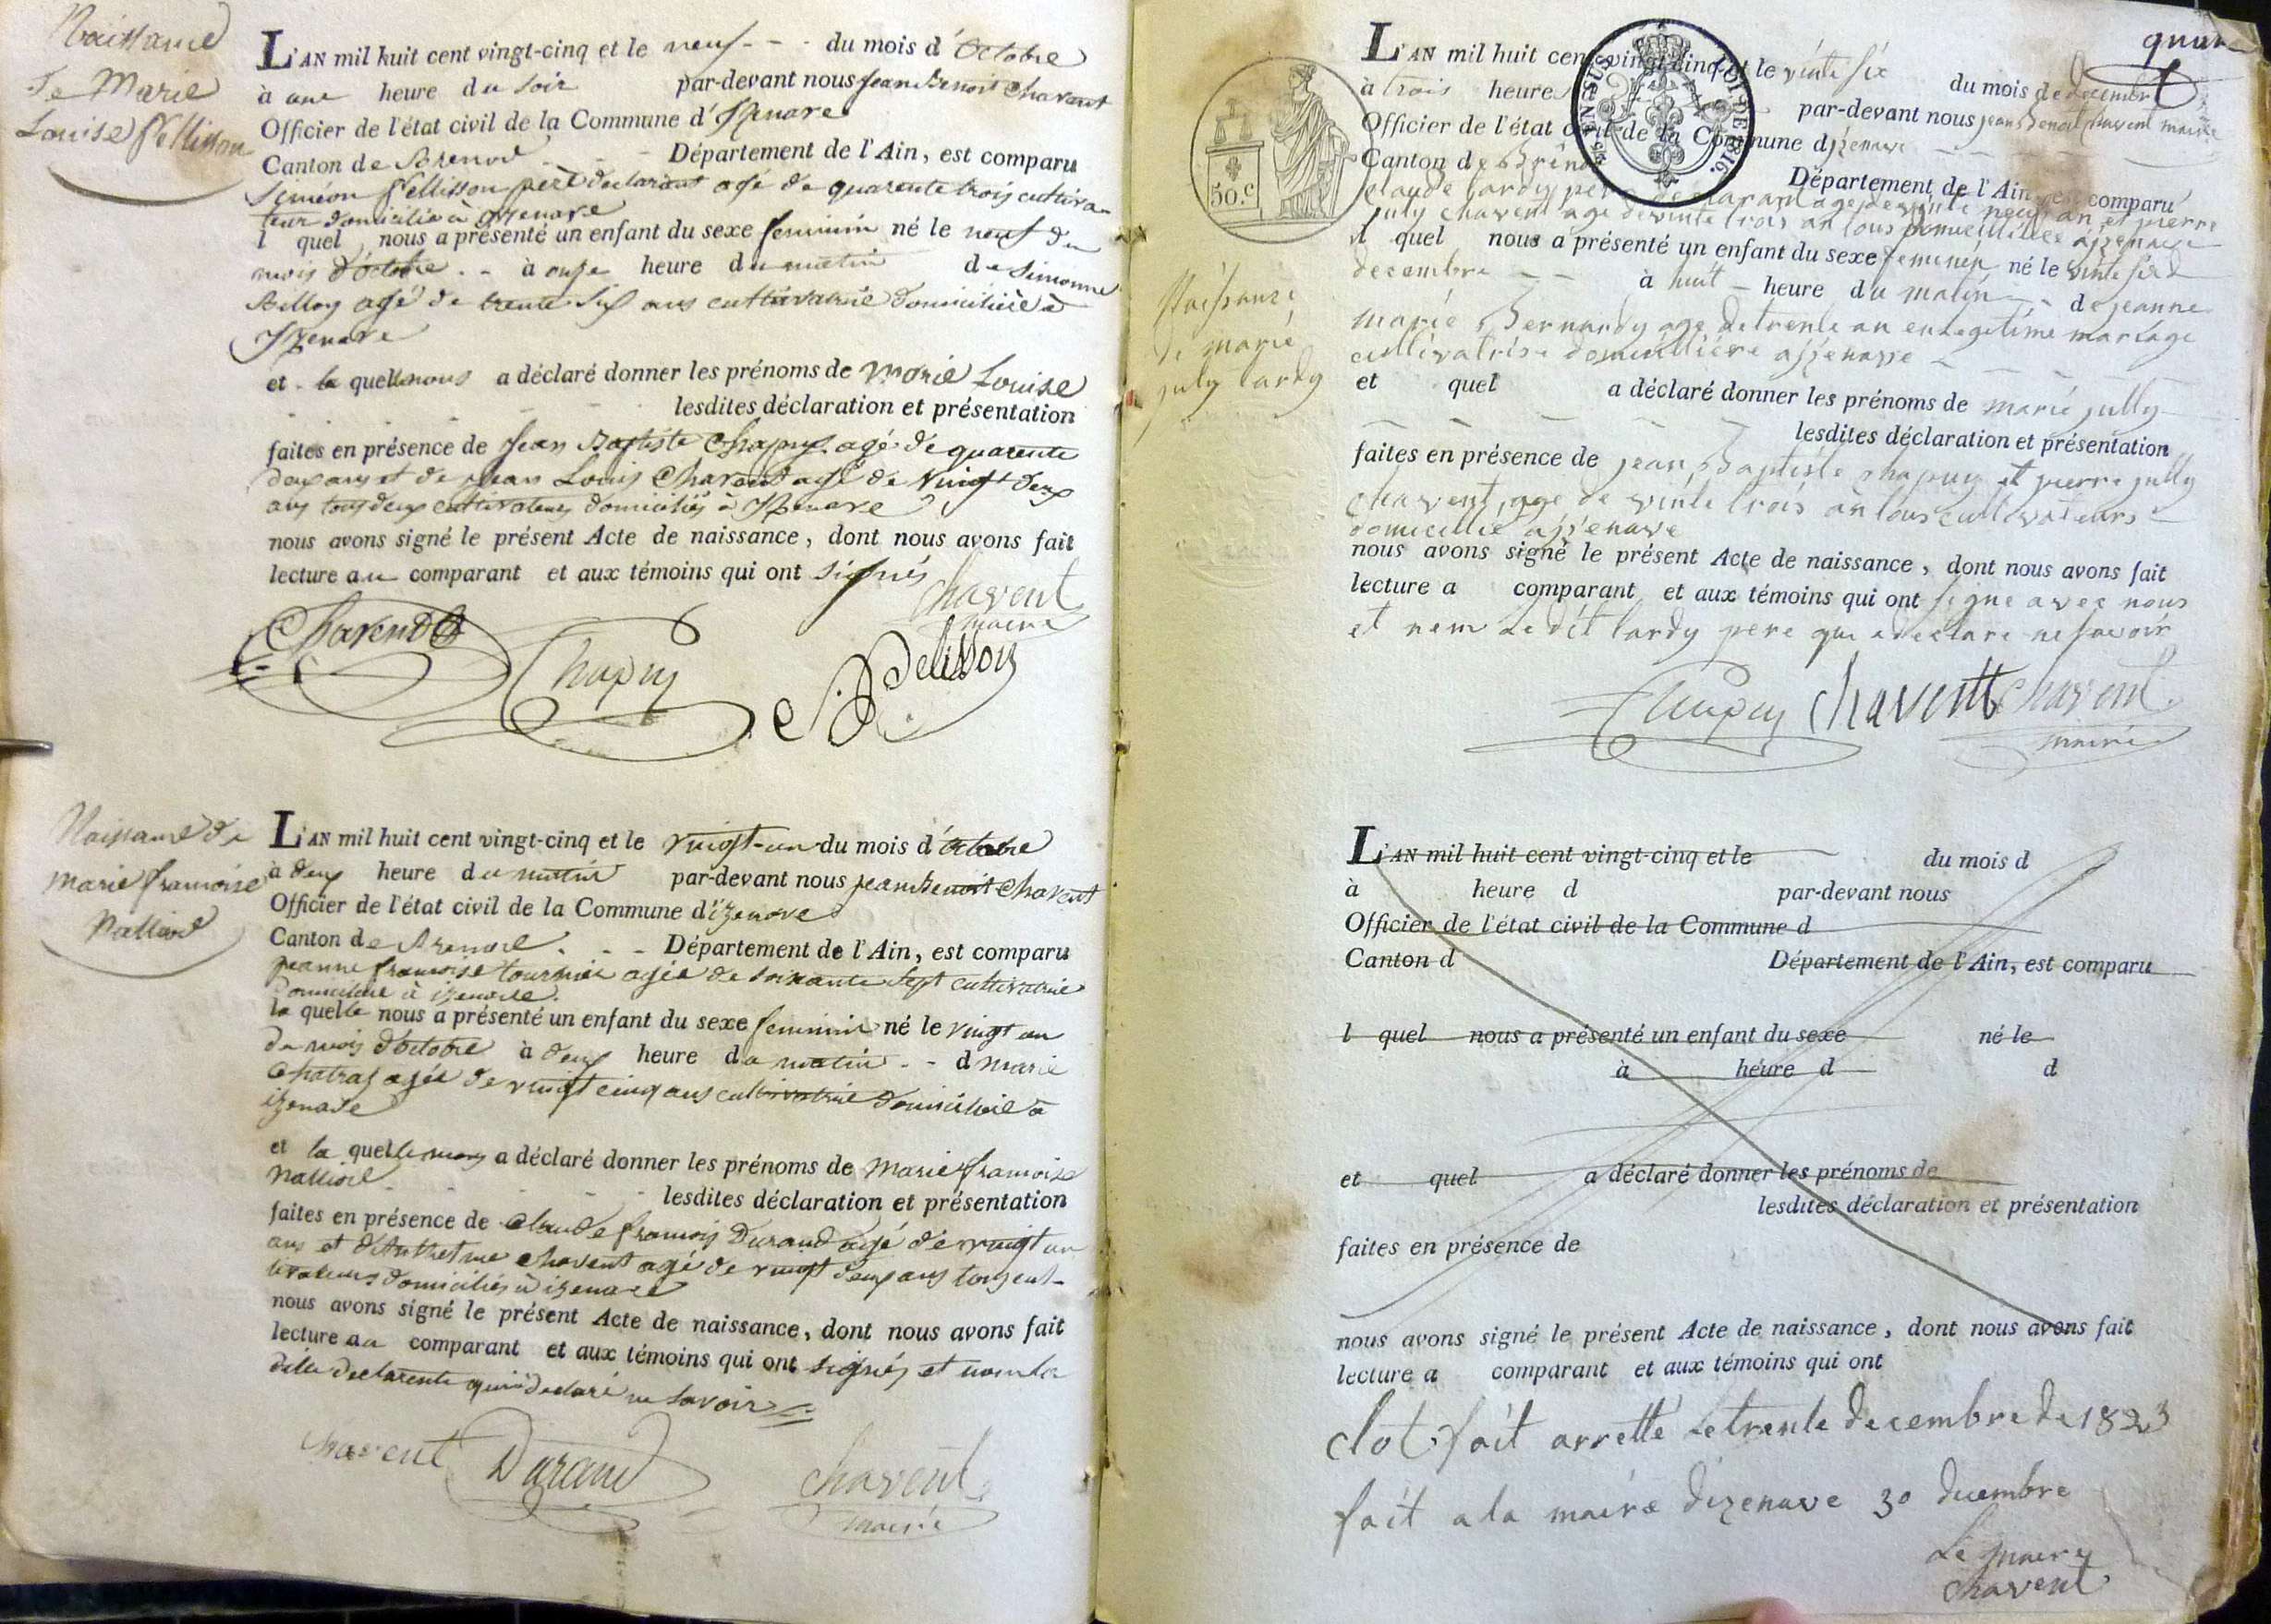 Naissance
de Marie
Louise Pellisson
L'AN mil huit cent vingt-cinq et le neuf - - - du mois d'Octobre
à une heure du soir par-devant nous Jean Benoit Chavent
Officier de l'état civil de la Commune d'Izenave
Canton de Brenod - - - Département de l'Ain, est comparu
Siméon Pellisson père déclarant agé de quarente trois cultiva-
teur domicilié à Izenave
l quel nous a présenté un enfant du sexe feminin né le neuf du
mois d'Octobre - - à onze heure du matin de Simonne
agé de trente six ans cultivatrice domicilière à
Izenave
et la quelle nous a déclaré donner les prénoms de Marie Louise
lesdites déclaration et présentation
faites en présence de Jean Baptiste Chapuy agé de quarente
deux ans et de Jean Louis Chavent agé de vingt deux
ans tous deux cultivateurs domiciliés à Izenave
nous avons signé le présent Acte de naissance, dont nous avons fait
lecture au comparant et aux témoins qui ont signés
Chavent
maire
Chavent Chapuy Pelisson
Naissance de
marie françoise
L'AN mil huit cent vingt-cinq et le vingt-un du mois d'Octobre
à deux heure du matin par-devant nous jean benoit Chavent
Officier de l'état civil de la Commune d'izenave
Canton de Brenod - - - Département de l'Ain, est comparu
jeanne françoise tournier agée de soixante sept cultivatrice
domiciliée à izenave.
la quelle nous a présenté un enfant du sexe feminin né le vingt un
du mois d'Octobre à deux heure du matin - - d marie
agée de vingt cinq ans cultivatrice domiciliée à
izenave
et la quelle nous a déclaré donner les prénoms de Marie françoise
lesdites déclaration et présentation
faites en présence de Claude françois Durand agé de vingt un
ans et d'Anthelme Chavent agé de vingt deux ans tous cul-
tivateurs domiciliés à izenave
nous avons signé le présent Acte de naissance, dont nous avons fait
lecture au comparant et aux témoins qui ont signés et non la
ditte declarente qui a declaré ne savoir
chavent Durand chavent
maire
quatre
50.C
L'AN mil huit cent vingt-cinq et le vinte six du mois de decembre
à trois heure par-devant nous jean benoit chavent maire
Officier de l'état civil de la Commune d'izenave
Canton de Brénod Département de l'Ain, est comparu
Claude tardy pere declarant age de vinte neuf an et pierre
july chavent age de vinte trois an tous domicillies a izenave
l quel nous a présenté un enfant du sexe feminin né le vinte six d
decembre - - à huit - heure du matin - - de jeanne
marie Bernardy age de trente an en legitime mariage
cultivatrise domicilliére a izenave
Naissance
de marie
july tardy
et quel a déclaré donner les prénoms de marie jully
lesdites déclaration et présentation
faites en présence de jean Baptiste chapuy et pierre jully
chavent, age de vinte trois an tous cultivateurs
domicillie a izenave
nous avons signé le présent Acte de naissance, dont nous avons fait
lecture a comparant et aux témoins qui ont signe avec nous
et nom ledit tardy pere qui a declare ne savoir
Chapuy chavent chavent
maire
L'AN mil huit cent vingt-cinq et le du mois d
à heure d par-devant nous
Officier de l'état civil de la Commune d
Canton d Département de l'Ain, est comparu
l quel nous a présenté un enfant du sexe né le
à heure d d
et quel a déclaré donner les prénoms de
lesdites déclaration et présentation
faites en présence de
nous avons signé le présent Acte de naissance, dont nous avons fait
lecture a comparant et aux témoins qui ont
clot fait arretté le trente decembre de 1825
fait a la maire dizenave 30 decembre
Le maire
chavent